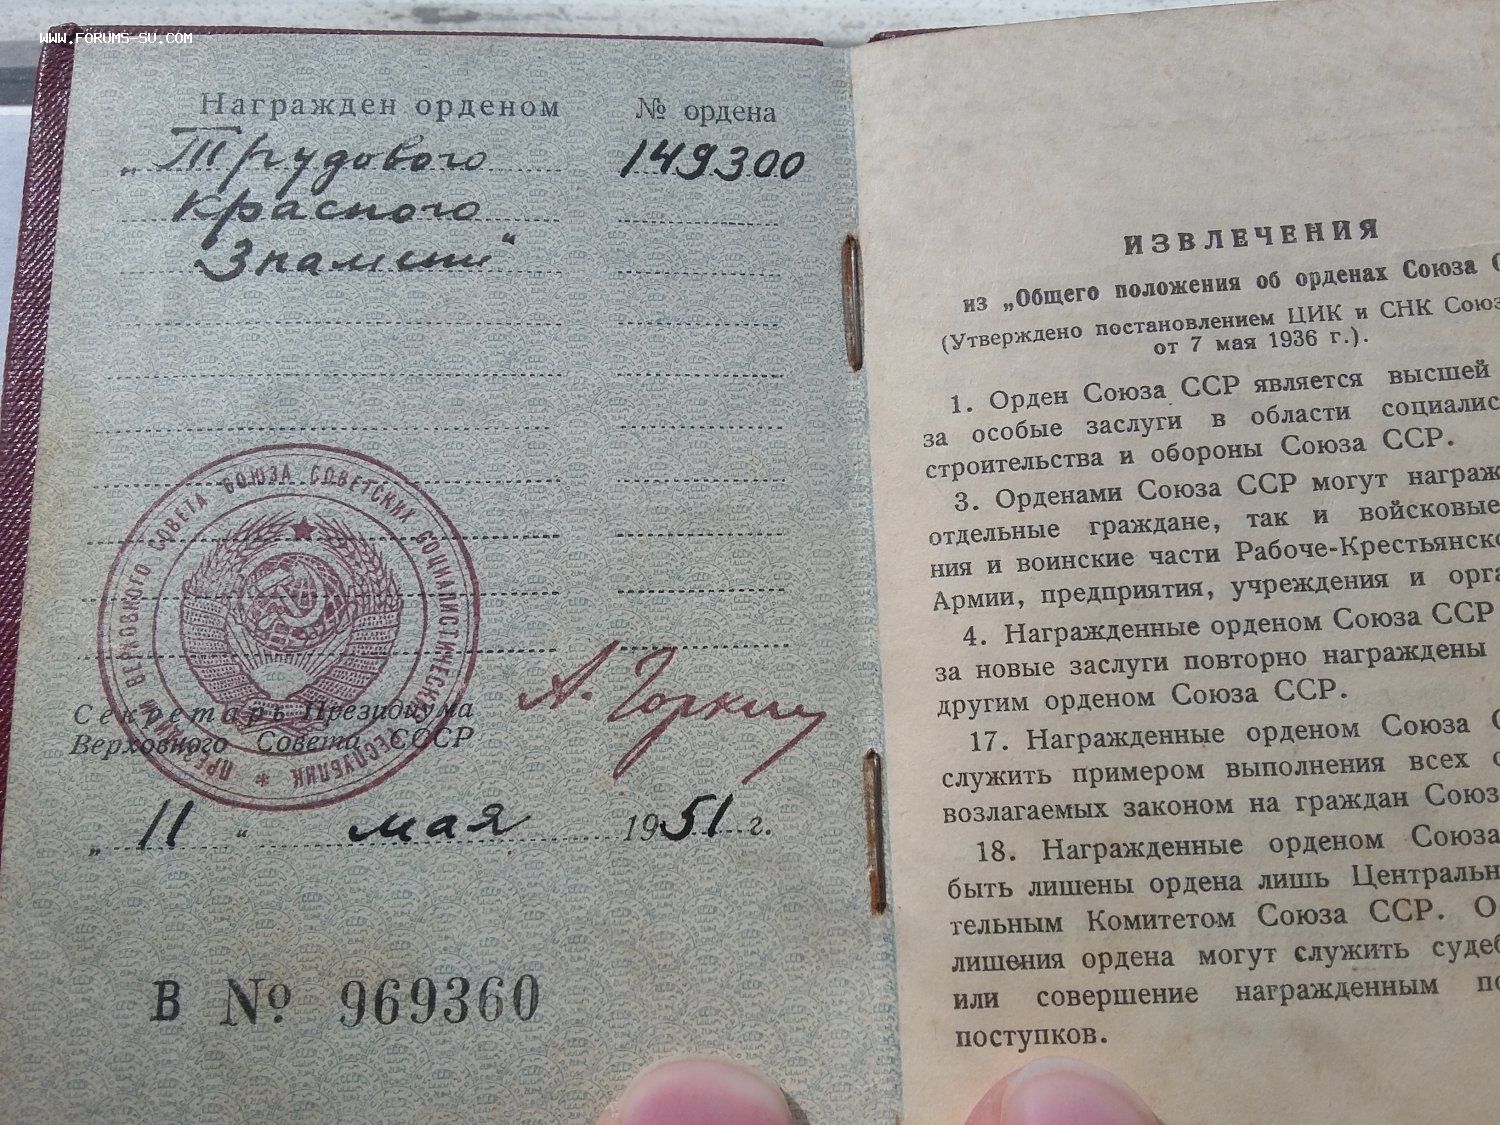 www.forums-su.com
Награжден орденом № ордена
„Трудового 149300
Красного
Знамени“
ПРЕЗИДИУМ ВЕРХОВНОГО СОВЕТА СОЮЗА СОВЕТСКИХ СОЦИАЛИСТИЧЕСКИХ РЕСПУБЛИК *
Секретарь Президиума
Верховного Совета СССР
А. Горкин
„11“ мая 1951 г.
В № 969360
ИЗВЛЕЧЕНИЯ
из „Общего положения об орденах Союза С
(Утверждено постановлением ЦИК и СНК Союз
от 7 мая 1936 г.).
1. Орден Союза ССР является высшей
за особые заслуги в области социалис
строительства и обороны Союза ССР.
3. Орденами Союза ССР могут награж
отдельные граждане, так и войсковые
ния и воинские части Рабоче-Крестьянско
Армии, предприятия, учреждения и орга
4. Награжденные орденом Союза ССР
за новые заслуги повторно награждены
другим орденом Союза ССР.
17. Награжденные орденом Союза С
служить примером выполнения всех о
возлагаемых законом на граждан Союз
18. Награжденные орденом Союза
быть лишены ордена лишь Центральн
тельным Комитетом Союза ССР. О
лишения ордена могут служить судеб
или совершение награжденным по
поступков.